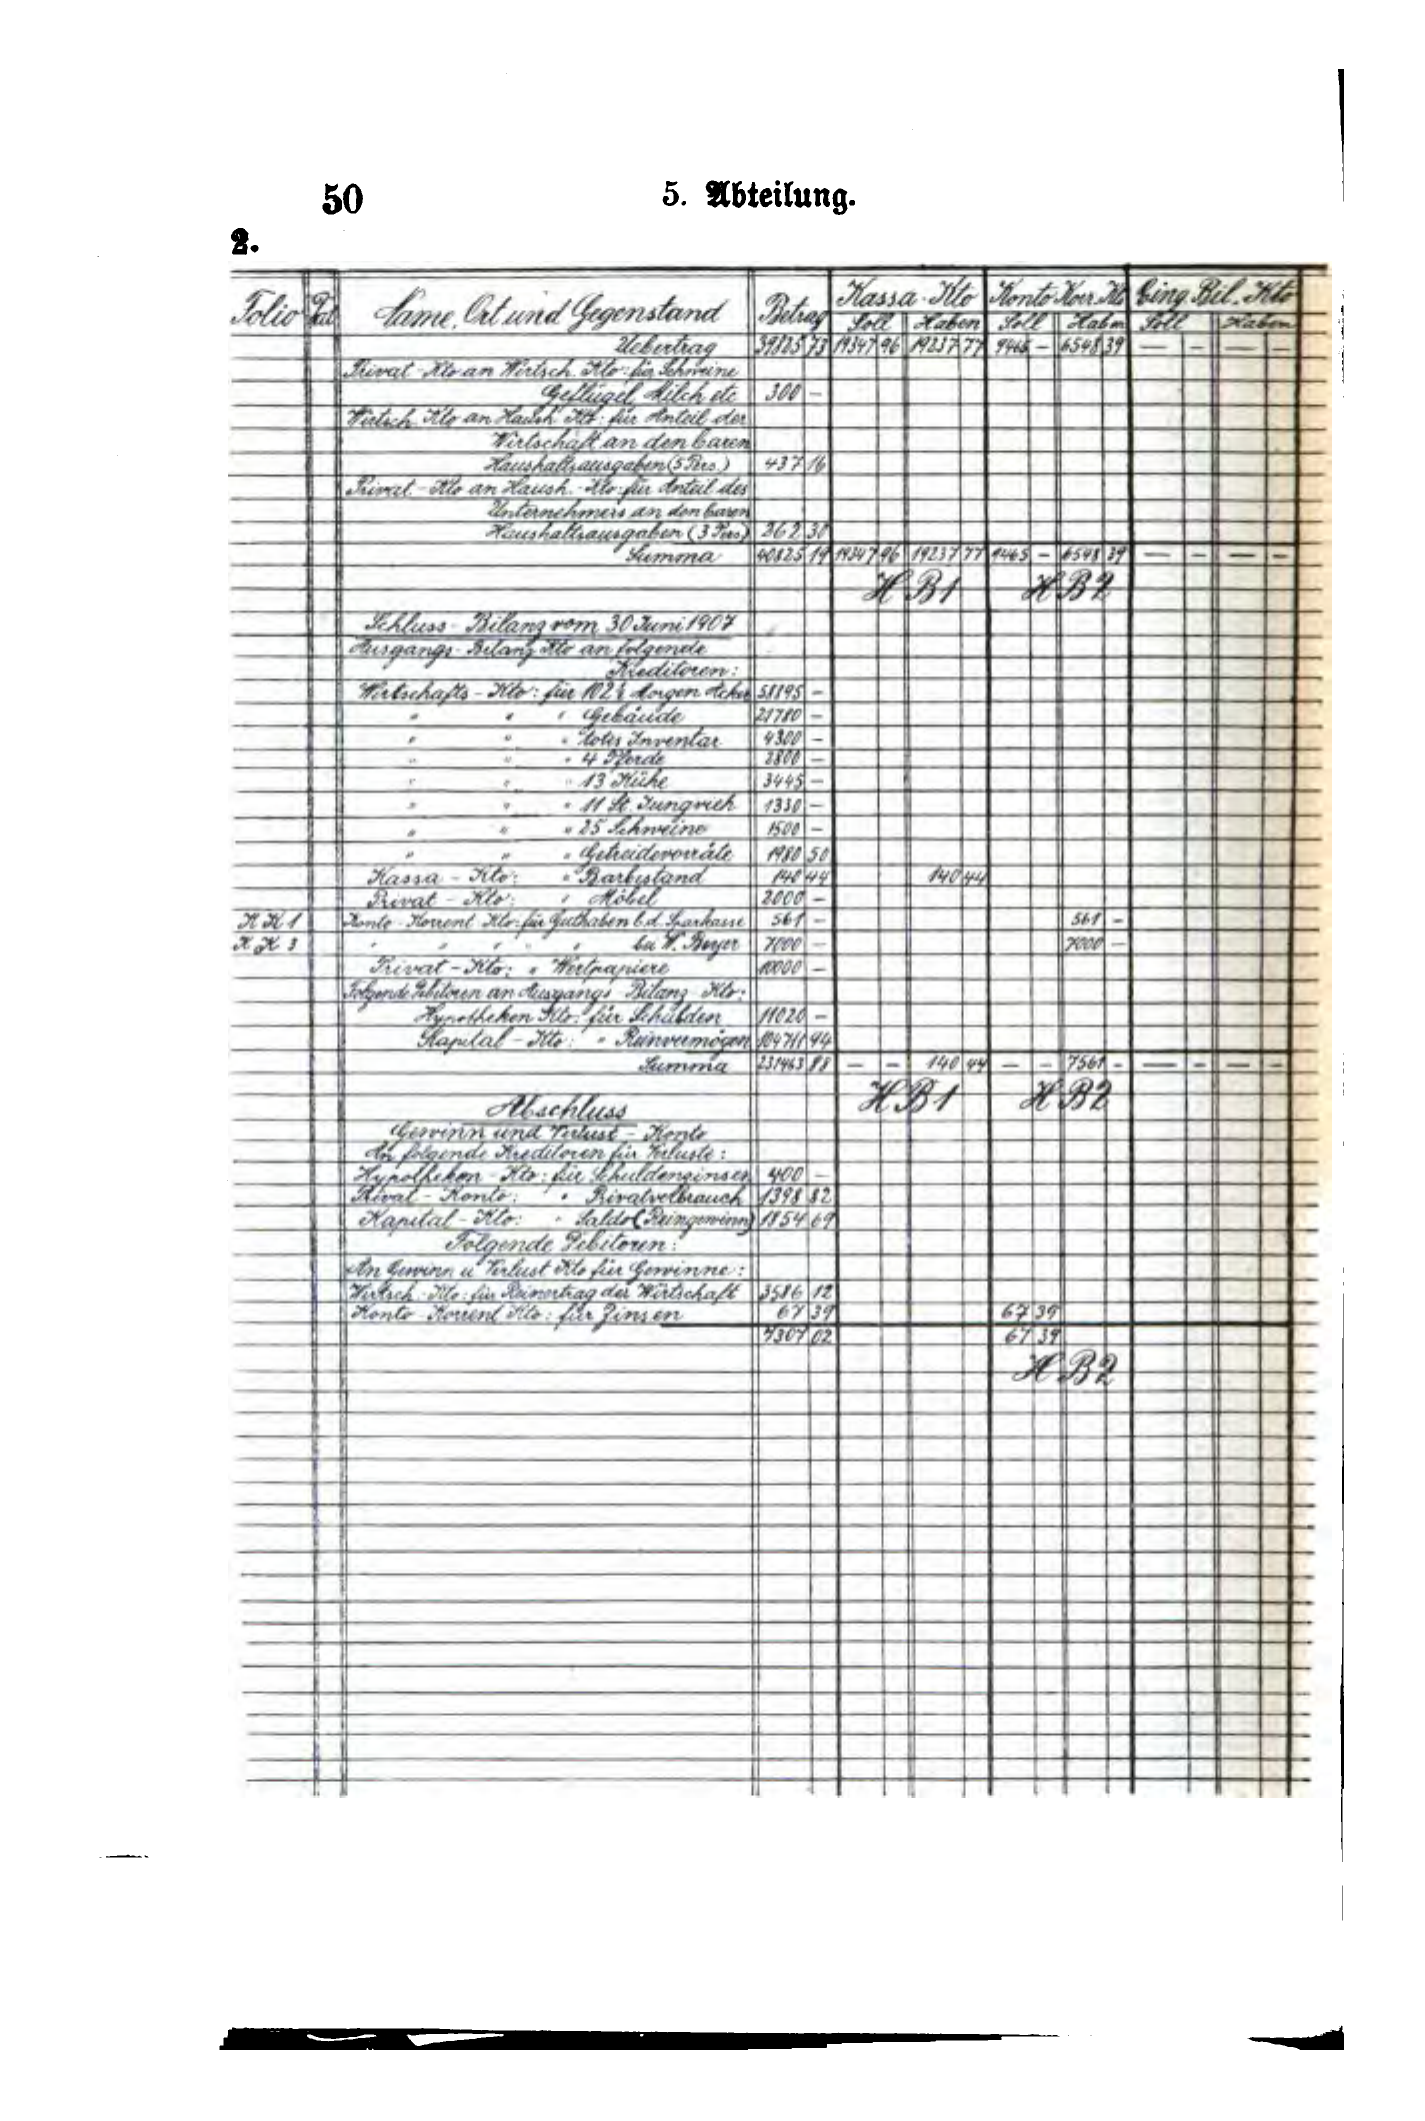 50 5. Abteilung.
2.
Folio Dat Name, Ort und Gegenstand Betrag Kassa-Kto Konto Korr. Kto Eing. Bil.-Kto
Soll Haben Soll Haben Soll Haben
Uebertrag 39825 73 19347 96 19237 77 9465 – 6548 39 — – — –
Privat-Kto an Wirtsch. Kto: für Schweine
Geflügel, Milch etc 300 –
Wirtsch. Kto an Haush. Kto: für Anteil der
Wirtschaft an den baren
Haushaltsausgaben (5 Pers.) 437 16
Privat-Kto an Haush.-Kto: für Anteil des
Unternehmers an den baren
Haushaltsausgaben (3 Pers) 262 30
Summa 40825 19 19347 96 19237 77 9465 – 6548 39 — – — –
H B 1 H B 2
Schluss-Bilanz vom 30 Juni 1907
Ausgangs-Bilanz Kto an folgende
Kreditoren:
Wirtschafts-Kto: für 102¼ Morgen Acker 58895 –
" " " Gebäude 21780 –
" " " totes Inventar 4300 –
" " " 4 Pferde 2800 –
" " " 13 Kühe 3445 –
" " " 11 St. Jungvieh 1330 –
" " " 25 Schweine 1500 –
" " " Getreidevorräte 1980 50
Kassa-Kto: " Barbestand 140 44 140 44
Privat-Kto: " Möbel 2000 –
K K 1 Konto-Korrent Kto: für Guthaben b. d. Sparkasse 561 – 561 –
K K 3 " " " " " bei W. Beyer 7000 – 7000 –
Privat-Kto: " Wertpapiere 10000 –
Folgende Debitoren an Ausgangs Bilanz-Kto:
Hypotheken Kto: für Schulden 11020 –
Kapital-Kto: " Reinvermögen 104711 94
Summa 231463 88 — – 140 44 — – 7561 – — – — –
H B 1 H B 2
Abschluss
Gewinn und Verlust-Konto
An folgende Kreditoren für Verluste:
Hypotheken-Kto: für Schuldenzinsen 400 –
Privat-Konto: " Privatverbrauch 1398 82
Kapital-Kto: " Saldo (Reingewinn) 1854 69
Folgende Debitoren:
An Gewinn u Verlust Kto für Gewinne:
Wirtsch.-Kto: für Reinertrag der Wirtschaft 3586 12
Konto-Korrent Kto: für Zinsen 67 39 67 39
7307 02 67 39
H B 2